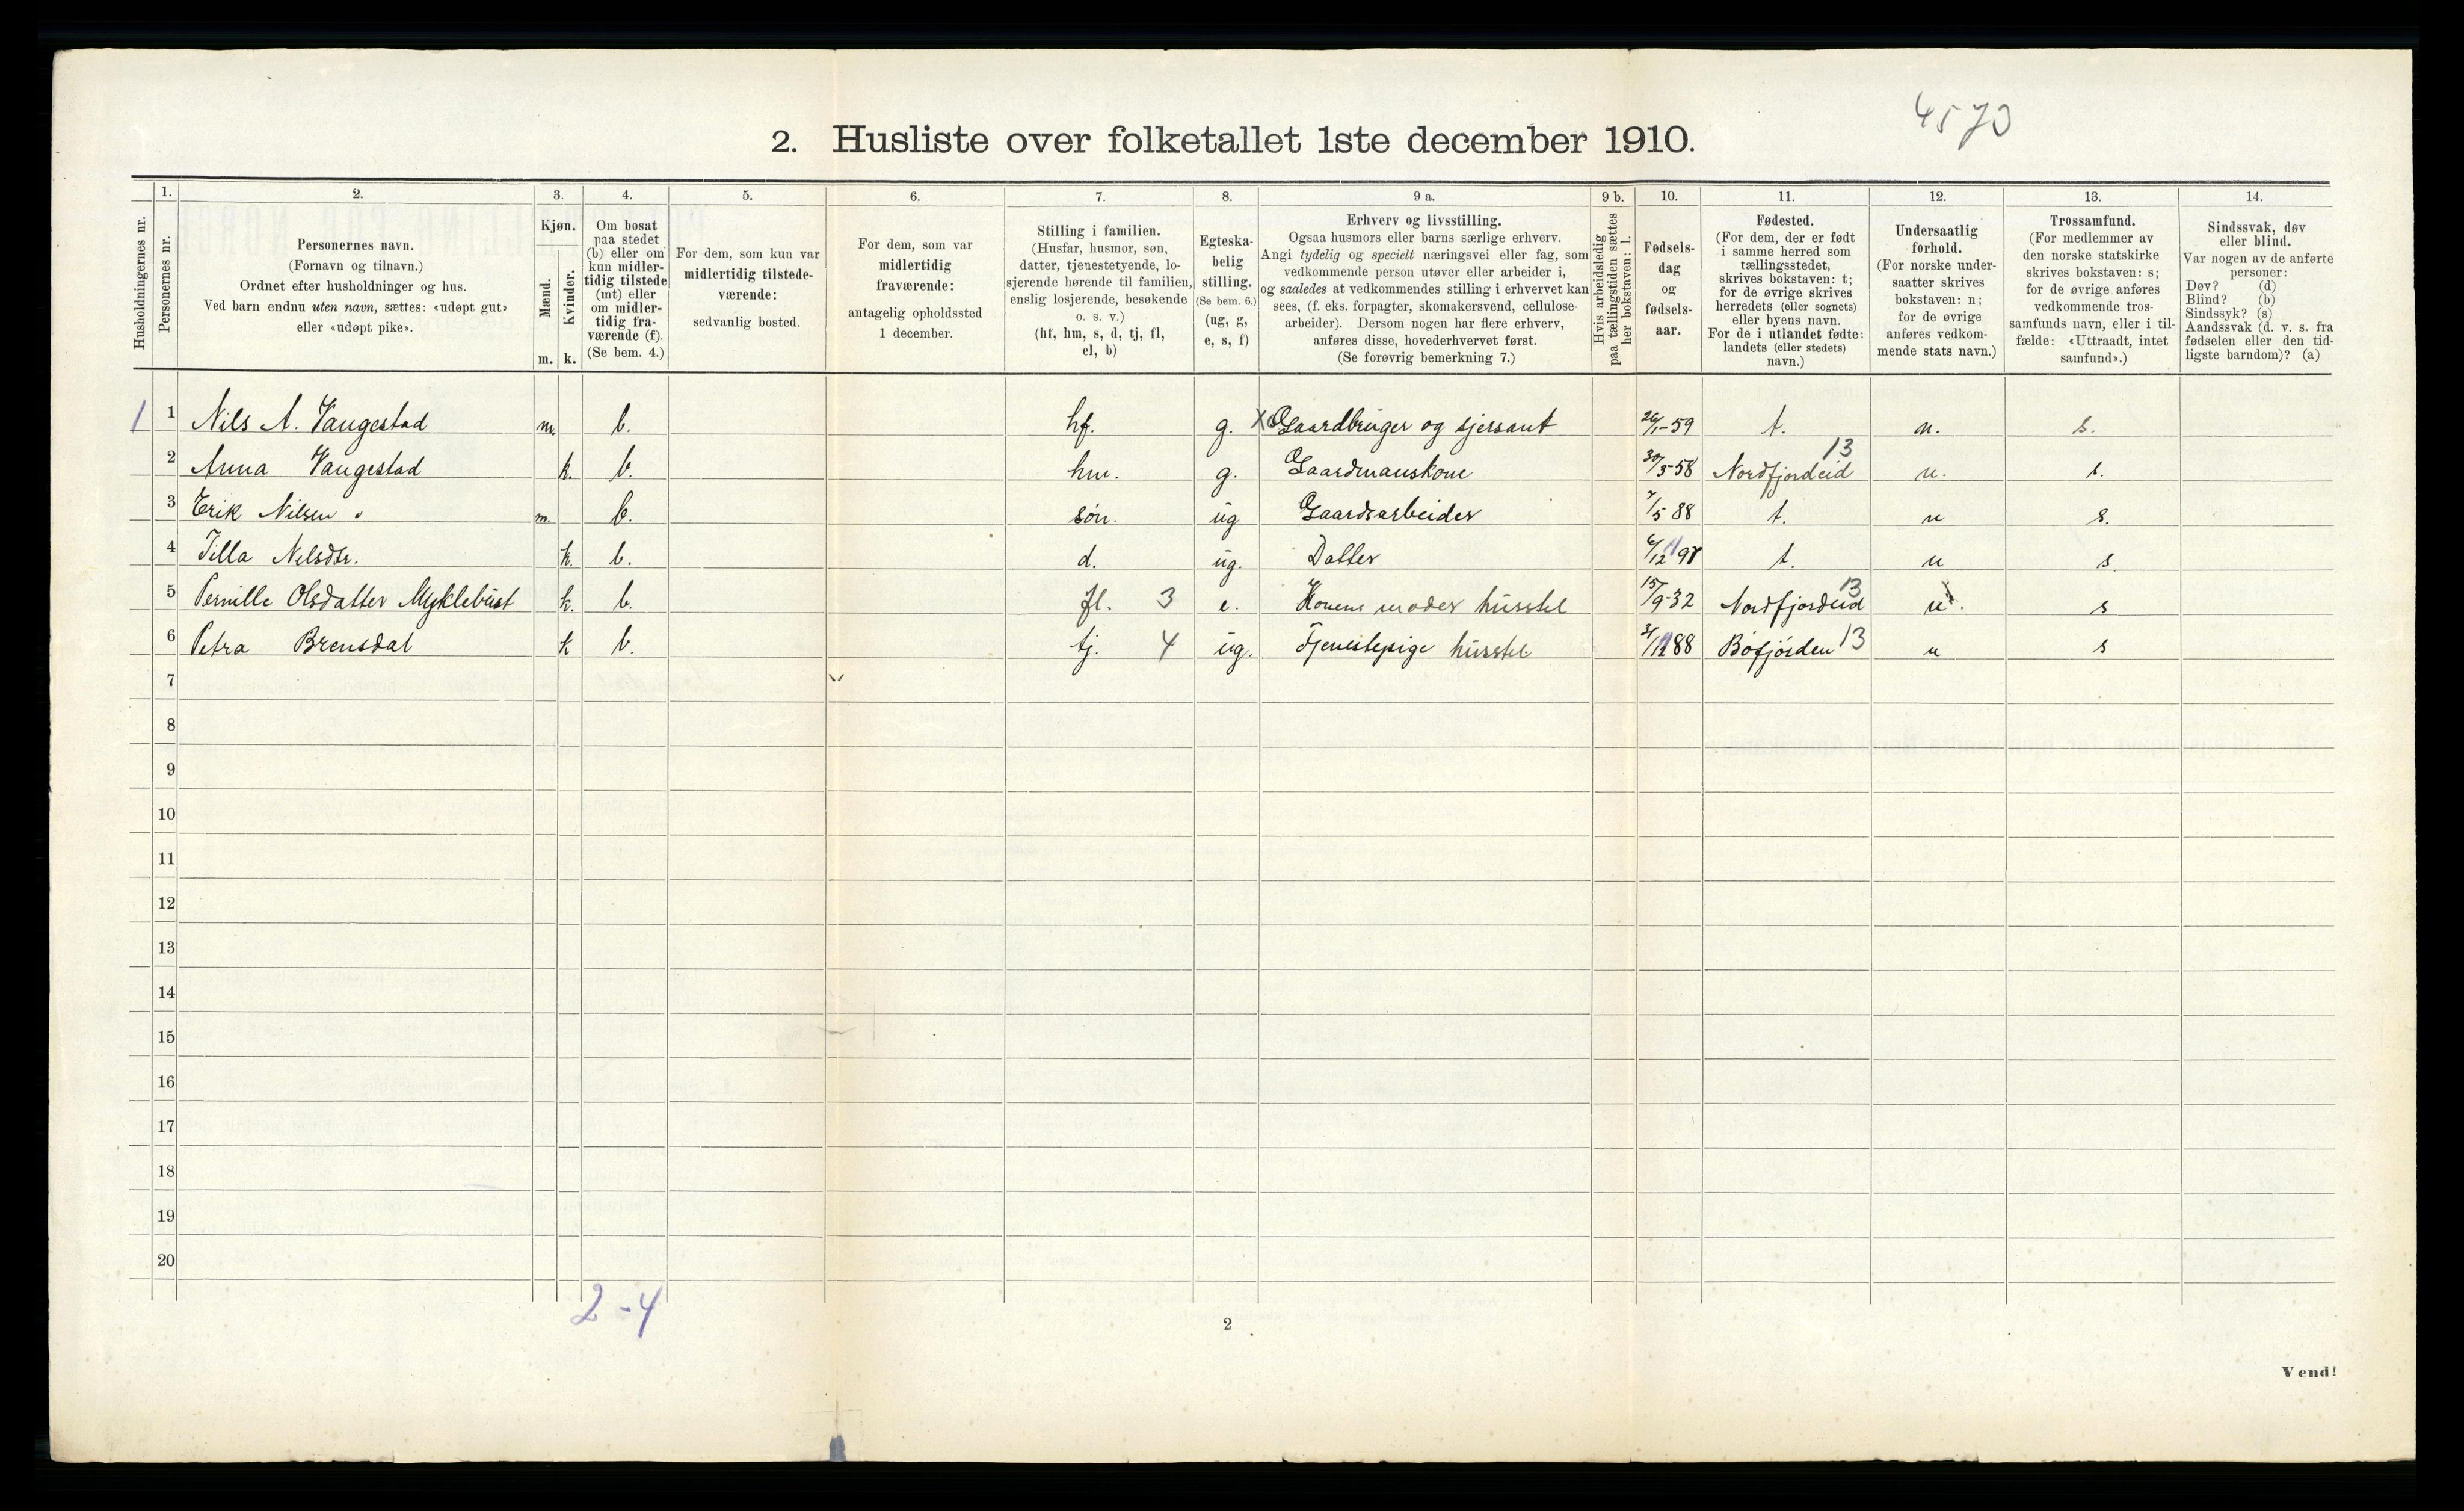 4573
2. Husliste over folketallet 1ste december 1910.
Husholdningernes nr.
1.
Personernes nr.
2.
Personernes navn.
(Fornavn og tilnavn.)
Ordnet efter husholdninger og hus.
Ved barn endnu uten navn, sættes: «udøpt gut»
eller «udøpt pike».
3.
Kjøn.
Mænd.
Kvinder.
m. k.
4.
Om bosat
paa stedet
(b) eller om
kun midler-
tidig tilstede
(mt) eller
om midler-
tidig fra-
værende (f).
(Se bem. 4.)
5.
For dem, som kun var
midlertidig tilstede-
værende:
sedvanlig bosted.
6.
For dem, som var
midlertidig
fraværende:
antagelig opholdssted
1 december.
7.
Stilling i familien.
(Husfar, husmor, søn,
datter, tjenestetyende, lo-
sjerende hørende til familien,
enslig losjerende, besøkende
o. s. v.)
(hf, hm, s, d, tj, fl,
el, b)
8.
Egteska-
belig
stilling.
(Se bem. 6.)
(ug, g,
e, s, f)
9 a.
Erhverv og livsstilling.
Ogsaa husmors eller barns særlige erhverv.
Angi tydelig og specielt næringsvei eller fag, som
vedkommende person utøver eller arbeider i,
og saaledes at vedkommendes stilling i erhvervet kan
sees, (f. eks. forpagter, skomakersvend, cellulose-
arbeider). Dersom nogen har flere erhverv,
anføres disse, hovederhvervet først.
(Se forøvrig bemerkning 7.)
9 b.
Hvis arbeidsledig
paa tællingstiden sættes
her bokstaven: l.
10.
Fødsels-
dag
og
fødsels-
aar.
11.
Fødested.
(For dem, der er født
i samme herred som
tællingsstedet,
skrives bokstaven: t;
for de øvrige skrives
herredets (eller sognets)
eller byens navn.
For de i utlandet fødte:
landets (eller stedets)
navn.)
12.
Undersaatlig
forhold.
(For norske under-
saatter skrives
bokstaven: n;
for de øvrige
anføres vedkom-
mende stats navn.)
13.
Trossamfund.
(For medlemmer av
den norske statskirke
skrives bokstaven: s;
for de øvrige anføres
vedkommende tros-
samfunds navn, eller i til-
fælde: «Uttraadt, intet
samfund».)
14.
Sindssvak, døv
eller blind.
Var nogen av de anførte
personer:
Døv? (d)
Blind? (b)
Sindssyk? (s)
Aandssvak (d. v. s. fra
fødselen eller den tid-
ligste barndom)? (a)
1 1 Nils A. Vangestad m. b. hf. g. X Gaardbruger og sjersant 26/1-59 t. n. s.
2 Anna Vangestad k. b. hm. g. Gaardmanskone 30/5-58 Nordfjordeid 13 n. s.
3 Erik Nilsen m. b. søn. ug Gaardsarbeider 7/5 88 t. n s.
4 Tilla Nilsdtr. k. b. d. ug. Datter 6/12 97 t. n s
5 Pernille Olsdatter Myklebust k. b. fl. 3 e. Konens moder husstel 15/9-32 Nordfjordeid 13 n. s
6 Petra Brensdal k b. tj. 4 ug. Tjenestepige husstel 3/12 88 Bøfjorden 13 n s
7
8
9
10
11
12
13
14
15
16
17
18
19
20
2-4
2
Vend!